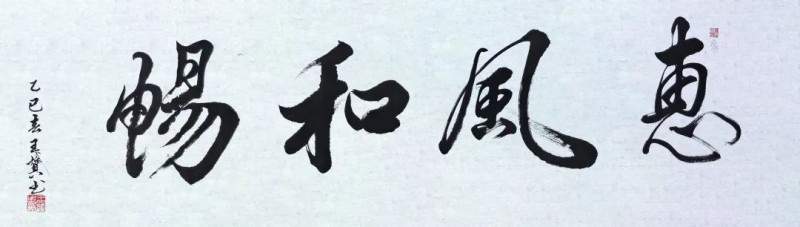 惠風和暢
乙巳春王贊書